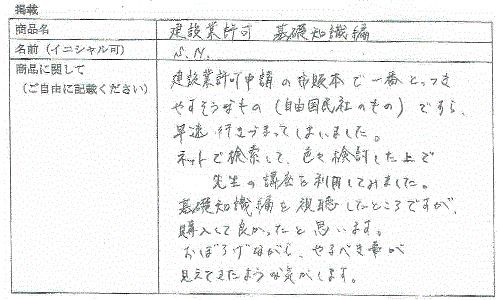 掲載
商品名 建設業許可 基礎知識編
名前(イニシャル可) S.N.
商品に関して
(ご自由に記載ください)
建設業許可申請の市販本で一番とっつき
やすそうなもの(自由国民社のもの)ですら、
早速行きづまってしまいました。
ネットで検索して、色々検討した上で
先生の講座を利用してみました。
基礎知識編を視聴したところですが、
購入して良かったと思います。
おぼろげながら、やるべき事が
見えてきたような気がします。